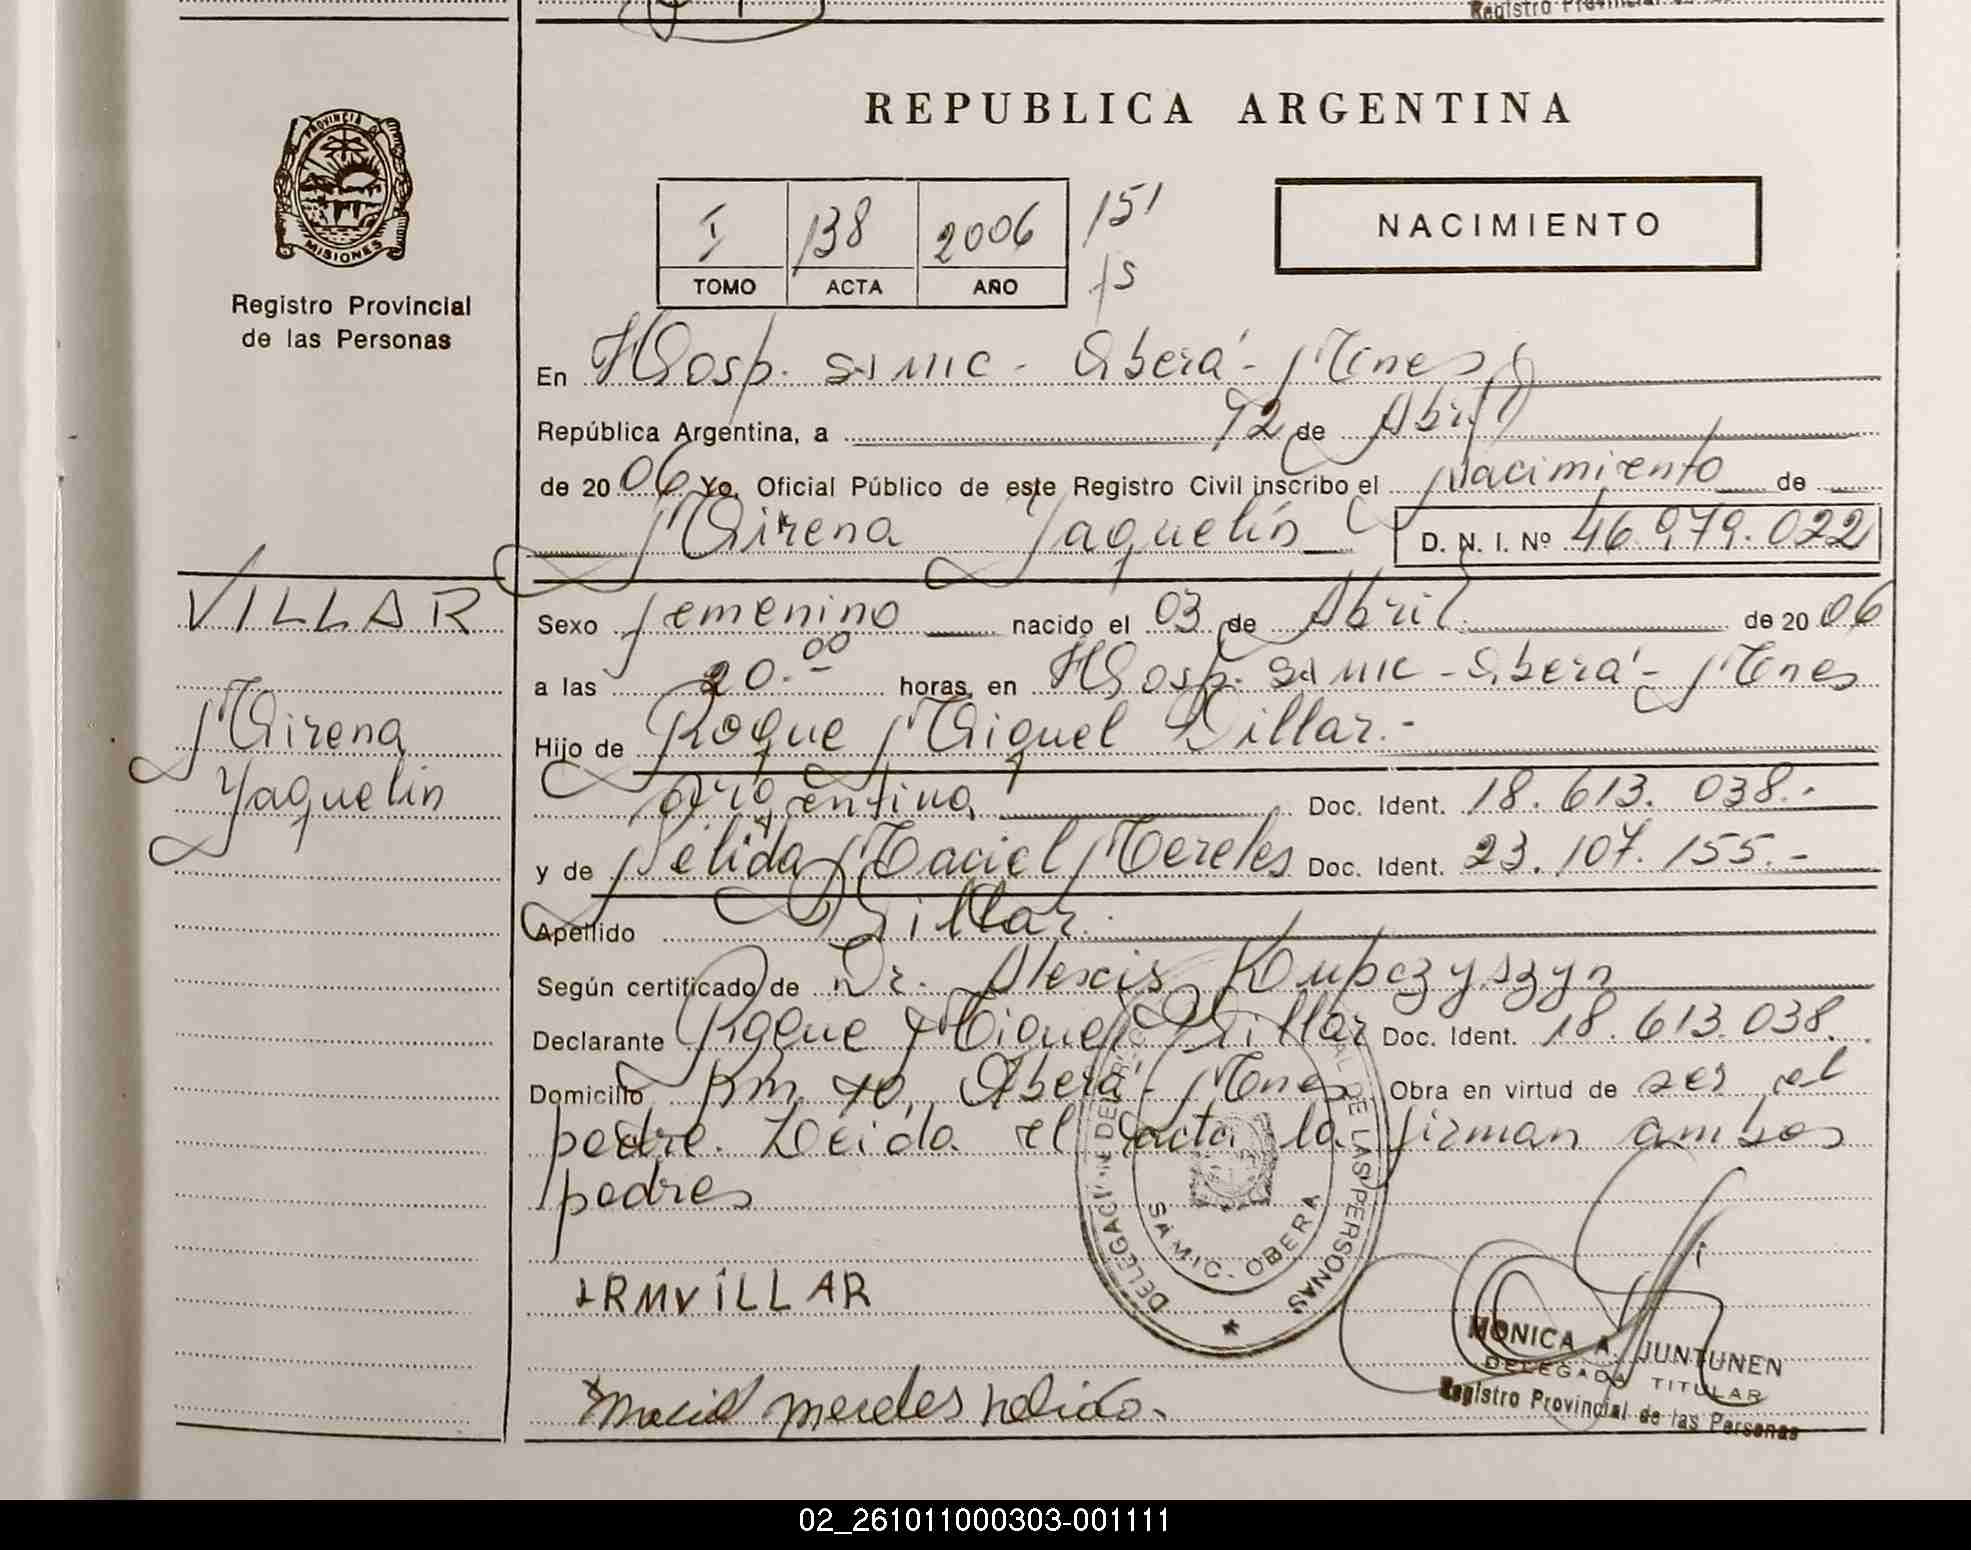 Registro Provincial de las
REPUBLICA ARGENTINA
PROVINCIA DE
MISIONES
Registro Provincial
de las Personas
I 138 2006 151
TOMO ACTA AÑO fs
NACIMIENTO
En Hosp. SAMIC - Oberá - Mnes
República Argentina, a 12 de Abril
de 2006 Yo, Oficial Público de este Registro Civil inscribo el Nacimiento de
Mirena Yaquelín D. N. I. Nº 46.979.022
VILLAR
Mirena
Yaquelin
Sexo femenino nacido el 03 de Abril de 2006
a las 20.00 horas, en Hosp. SAMIC - Oberá - Mnes
Hijo de Roque Miguel Villar.-
argentina Doc. Ident. 18.613.038.-
y de Nélida Maciel Mereles Doc. Ident. 23.107.155.-
Apellido Villar.
Según certificado de Dr. Alexis Kupczyszyn
Declarante Roque Miguel Villar Doc. Ident. 18.613.038.
Domicilio Km 10, Oberá - Mnes Obra en virtud de ser el
padre. Leida el acta la firman ambos
padres
DELEGACION DEL REGISTRO PROVINCIAL DE LAS PERSONAS
SAMIC - OBERA
RMVILLAR
MONICA A. JUNTUNEN
DELEGADA TITULAR
Registro Provincial de las Personas
Maciel mereles nelida.
02_261011000303-001111